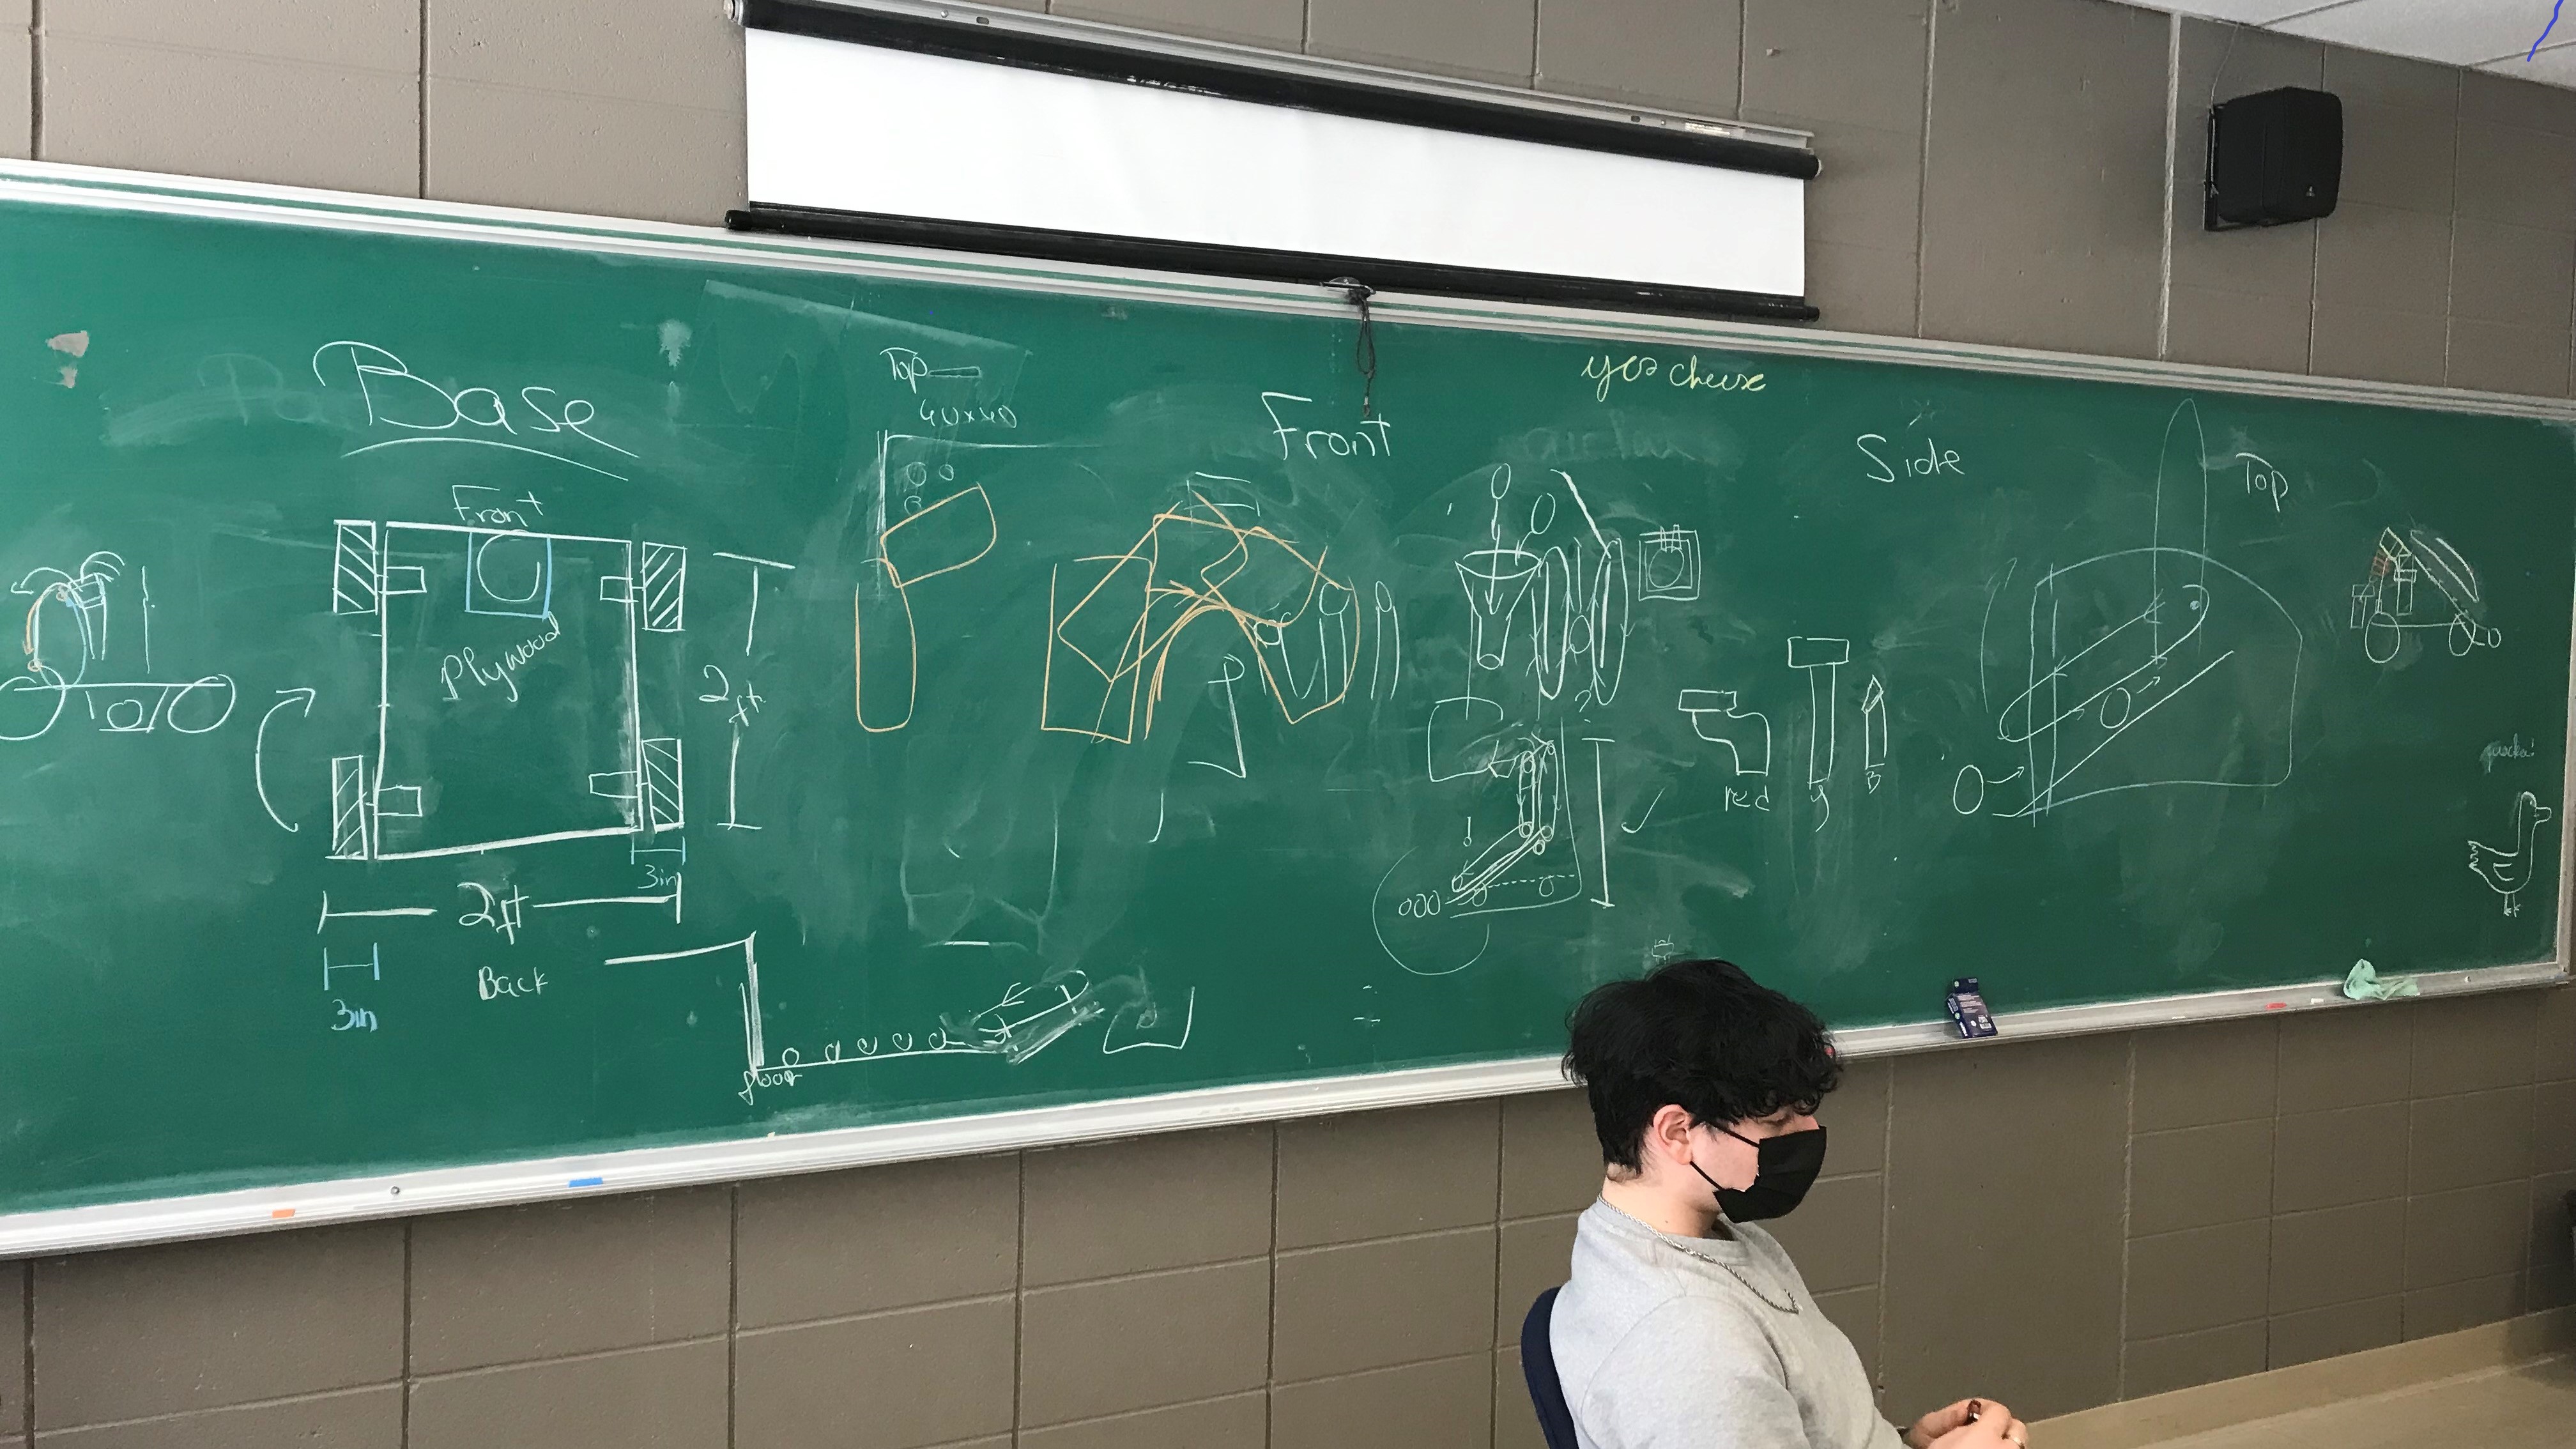 Base
Front
Plywood
2ft
3in
2ft
3in
Back
floor
Top
40x40
Front
yes cheese
Side
red
y
B
Top